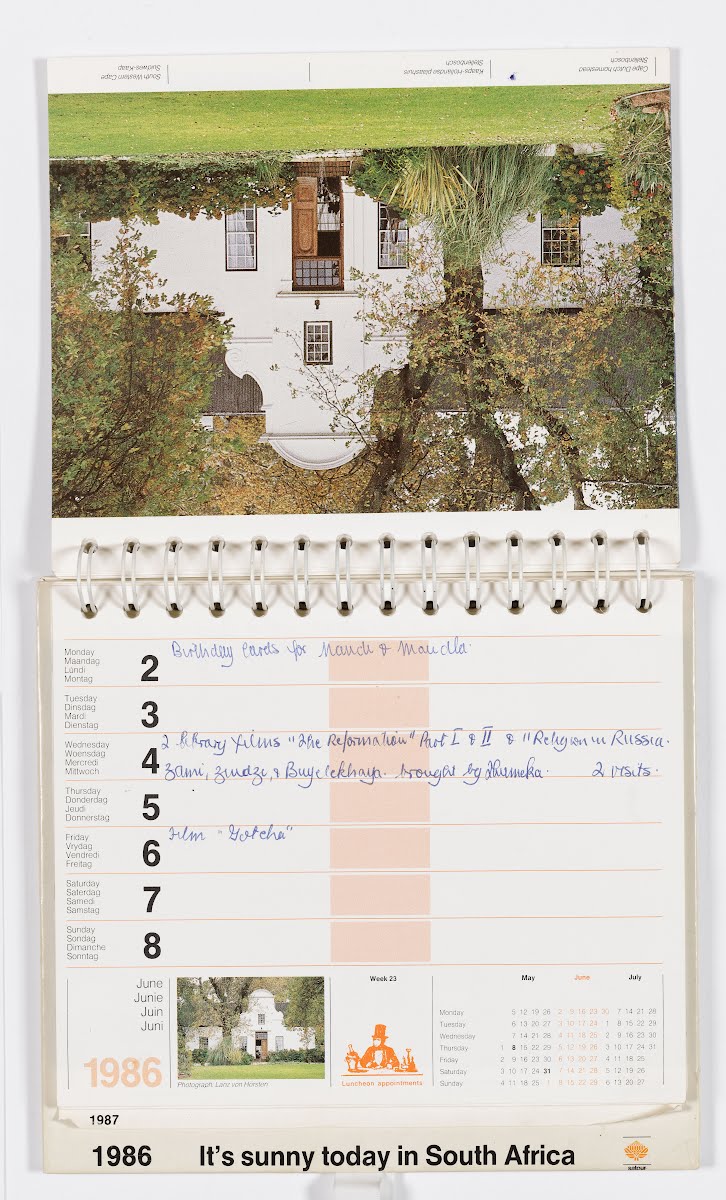 South Western Cape
Suidwes-Kaap
Kaaps-Hollandse plaashuis
Stellenbosch
Cape Dutch homestead
Stellenbosch
Monday
Maandag
Lundi
Montag
2
Birthday Cards for Nandi & Mandla.
Tuesday
Dinsdag
Mardi
Dienstag
3
Wednesday
Woensdag
Mercredi
Mittwoch
4
2 library films "The Reformation" Part I & II & "Religion in Russia.
Zami, Zindzi, & Buyelekhaya. brought by 2 visits.
Thursday
Donderdag
Jeudi
Donnerstag
5
Friday
Vrydag
Vendredi
Freitag
6
Film "Gotcha"
Saturday
Saterdag
Samedi
Samstag
7
Sunday
Sondag
Dimanche
Sonntag
8
June
Junie
Juin
Juni
1986
Photograph: Lanz von Horsten
Week 23
Luncheon appointments
May June July
Monday 5 12 19 26 2 9 16 23 30 7 14 21 28
Tuesday 6 13 20 27 3 10 17 24 1 8 15 22 29
Wednesday 7 14 21 28 4 11 18 25 2 9 16 23 30
Thursday 1 8 15 22 29 5 12 19 26 3 10 17 24 31
Friday 2 9 16 23 30 6 13 20 27 4 11 18 25
Saturday 3 10 17 24 31 7 14 21 28 5 12 19 26
Sunday 4 11 18 25 1 8 15 22 29 6 13 20 27
1987
1986 It's sunny today in South Africa
satour